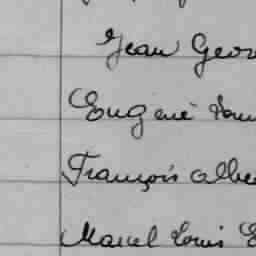 Jean Geor
Eugène Lou
François Albe
Marcel Louis E